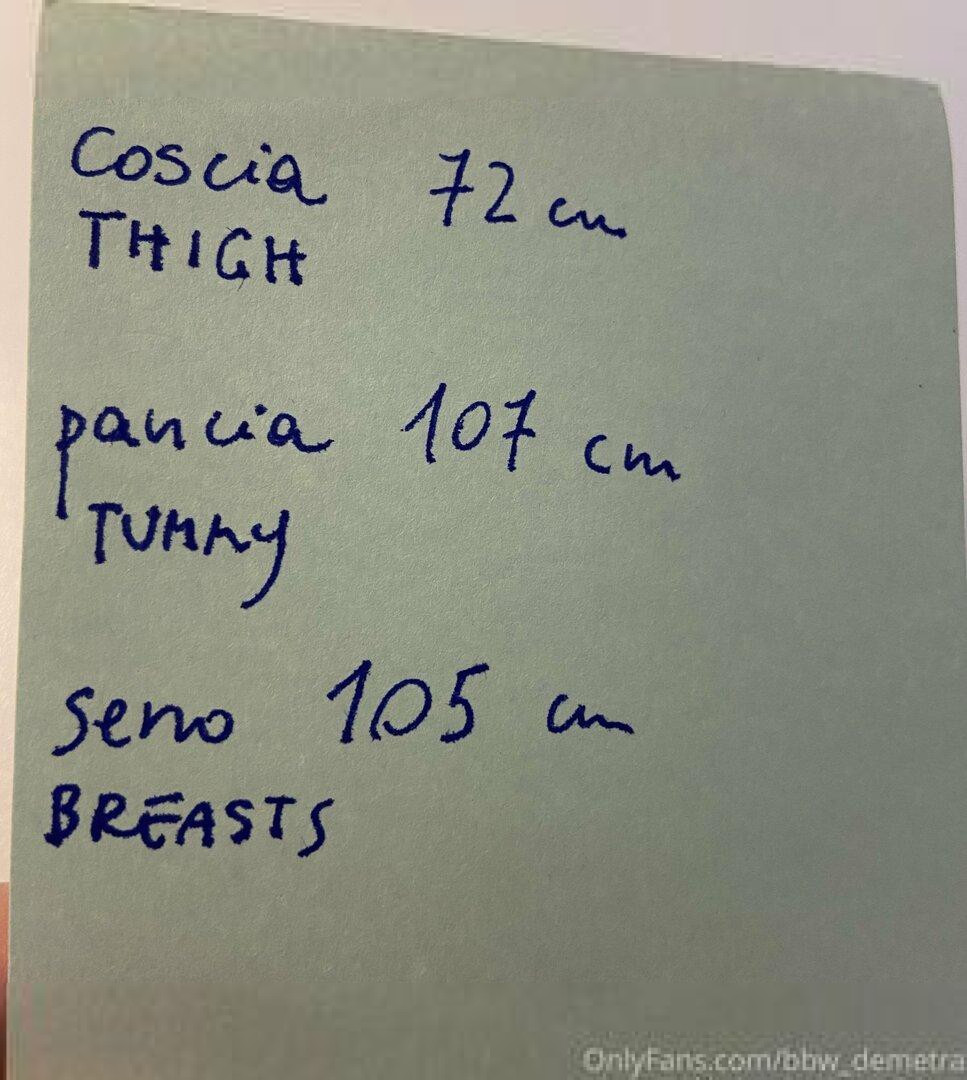 Coscia 72 cm
THIGH
pancia 107 cm
TUMMY
seno 105 cm
BREASTS
OnlyFans.com/bbw_demetra